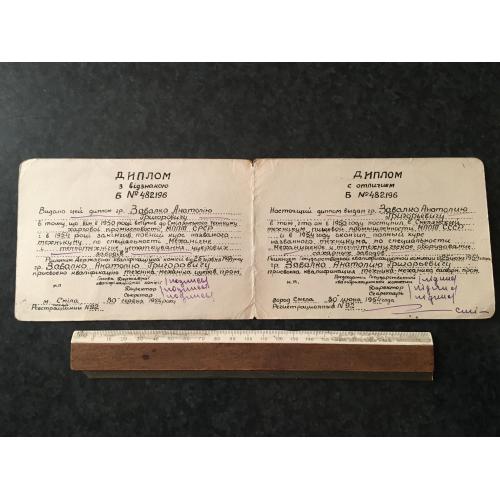 ДИПЛОМ
з відзнакою
Б №482196
Видано цей диплом гр. Завалко Анатолію
Григоровичу
в тому, що він в 1950 році вступив до Смілянського технікуму
харчової промисловості МППТ СРСР
і в 1954 році закінчив повний курс названого
технікуму по спеціальності Механічне
і теплотехнічне устаткування цукрових
заводів.
Рішенням Державної кваліфікаційної комісії від
гр. Завалко Анатолію Григоровичу
присвоєно кваліфікацію техніка-механіка цукров. пром.
Голова Державної
кваліфікаційної комісії (подпись)
Директор (подпись)
Секретарь (подпись)
м. Сміла 30 1954 року
Регистрационный №92
ДИПЛОМ
с отличием
Б №482196
Настоящий диплом выдан гр. Завалко Анатолию
Григорьевичу
в том, что он в 1950 году поступил в Смелянский
техникум пищевой промышленности МППТ СССР
и в 1954 году окончил полный курс
названного техникума по специальности
механическое и теплотехническое оборудование
сахарного заводов.
Решением Государственной квалификационной комиссии
гр. Завалко Анатолию Григорьевичу
присвоена квалификация техника-механика сахарн. пром.
Председатель Государственной
квалификационной комиссии (подпись)
Директор (подпись)
Секретарь (подпись)
город Смела 30 июня 1954 года
Регистрационный №92